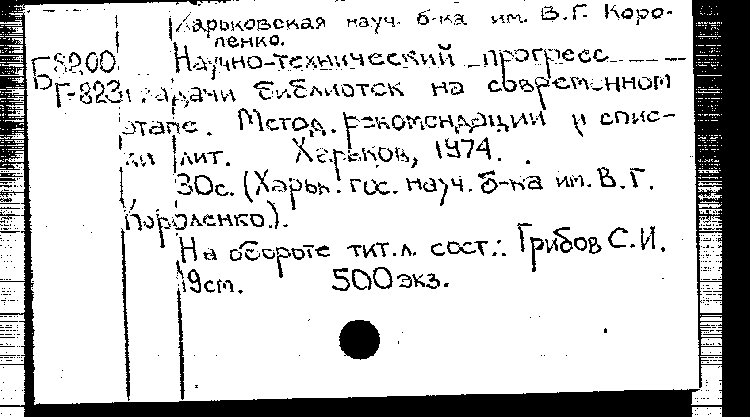 Харьковская науч. б-ка им. В.Г. Коро-
ленко.
Б8200 Научно-технический прогресс
Г-823 и задачи библиотек на современном
этапе. Метод. рекомендации и спис-
ки лит. Харьков, 1974.
30с. (Харьк. гос. науч. б-ка им. В.Г.
Короленко).
На обороте тит.л. сост.: Грибов С.И.
19см. 500экз.